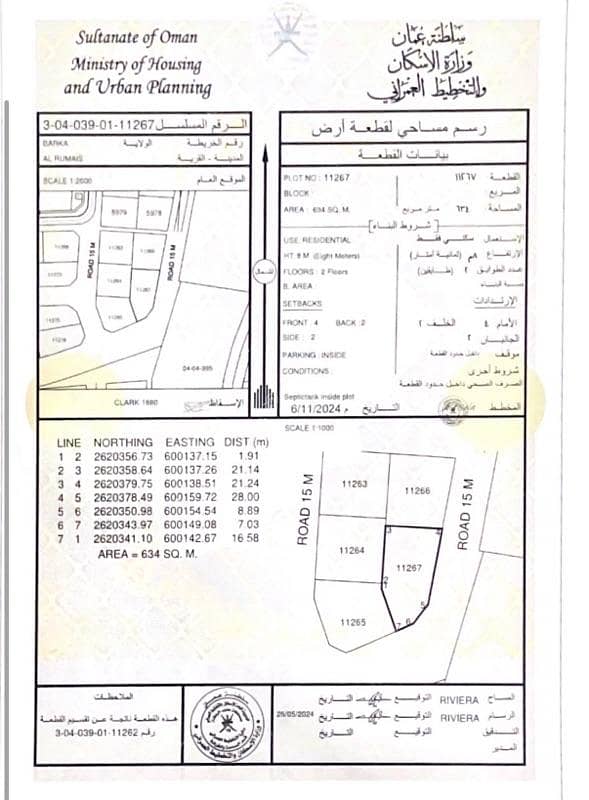 Sultanate of Oman
Ministry of Housing
and Urban Planning
سلطنة عمان
وزارة الإسكان
والتخطيط العمراني
الرقم المسلسل 3-04-039-01-11267
BARKA الولاية رقم الخريطة
AL RUMAIS المدينة - القرية
SCALE 1:2500 الموقع العام
5979 5978
ROAD 15 M
ROAD 15 M
04-04-395
CLARK 1880 الإسقاط
الشمال
رسم مساحي لقطعة أرض
بيانات القطعة
PLOT NO : 11267 القطعة ١١٢٦٧
BLOCK : المربع
AREA : 634 SQ. M. المساحة ٦٣٤ متر مربع
شروط البناء
USE: RESIDENTIAL الإستعمال سكني فقط
HT 8 M (Eight Meters) الإرتفاع ٨م (ثمانية أمتار)
FLOORS : 2 Floors عدد الطوابق ٢ (طابقين)
B. AREA نسبة البناء
SETBACKS الإرتدادات
FRONT : 4 BACK : 2 الأمام ٤ الخلف ٢
SIDE : 2 الجانبان ٢
PARKING : INSIDE موقف داخل حدود القطعة
CONDITIONS : شروط أخرى
الصرف الصحي داخل حدود القطعة
Septictank inside plot
6/11/2024 م التاريخ المخطط
SCALE 1:1000
LINE NORTHING EASTING DIST (m)
1 2 2620356.73 600137.15 1.91
2 3 2620358.64 600137.26 21.14
3 4 2620379.75 600138.51 21.24
4 5 2620378.49 600159.72 28.00
5 6 2620350.98 600154.54 8.89
6 7 2620343.97 600149.08 7.03
7 1 2620341.10 600142.67 16.58
AREA = 634 SQ. M.
ROAD 15 M
ROAD 15 M
11263
11266
11264
11267
11265
3 4
2
1
5
6
7
الملاحظات
هذه القطعة ناتجة عن تقسيم القطعة
رقم 3-04-039-01-11262
المساح RIVIERA التوقيع التاريخ
الرسام RIVIERA التوقيع التاريخ 26/05/2024
التدقيق التوقيع التاريخ
المدير